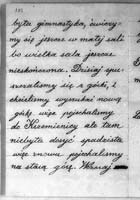 była gimnastyka, ćwiczy-
my się jeszcze w małej sali
bo wielka sala jeszcze
nieskończona. Dzisiaj spu-
szczaliśmy się z górki, i
chcieliśmy wyszukać nową
górkę więc pojechaliśmy
do Krzemienicy ale tam
nie było dosyć spadzisto
więc znowu pojechaliśmy
na starą górę. Wczoraj